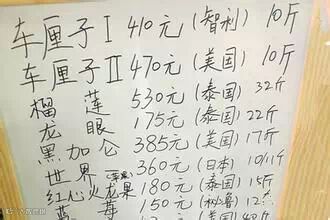 车厘子Ⅰ 410元(智利) 10斤
车厘子Ⅱ 470元(美国) 10斤
榴莲 530元(泰国) 32斤
龙眼 175元(泰国) 22斤
黑加仑 385元(美国) 17斤
世界 360元(日本) 10/11斤
红心火龙果 180元(泰国) 15斤
蓝莓 150元(秘鲁) 12斤